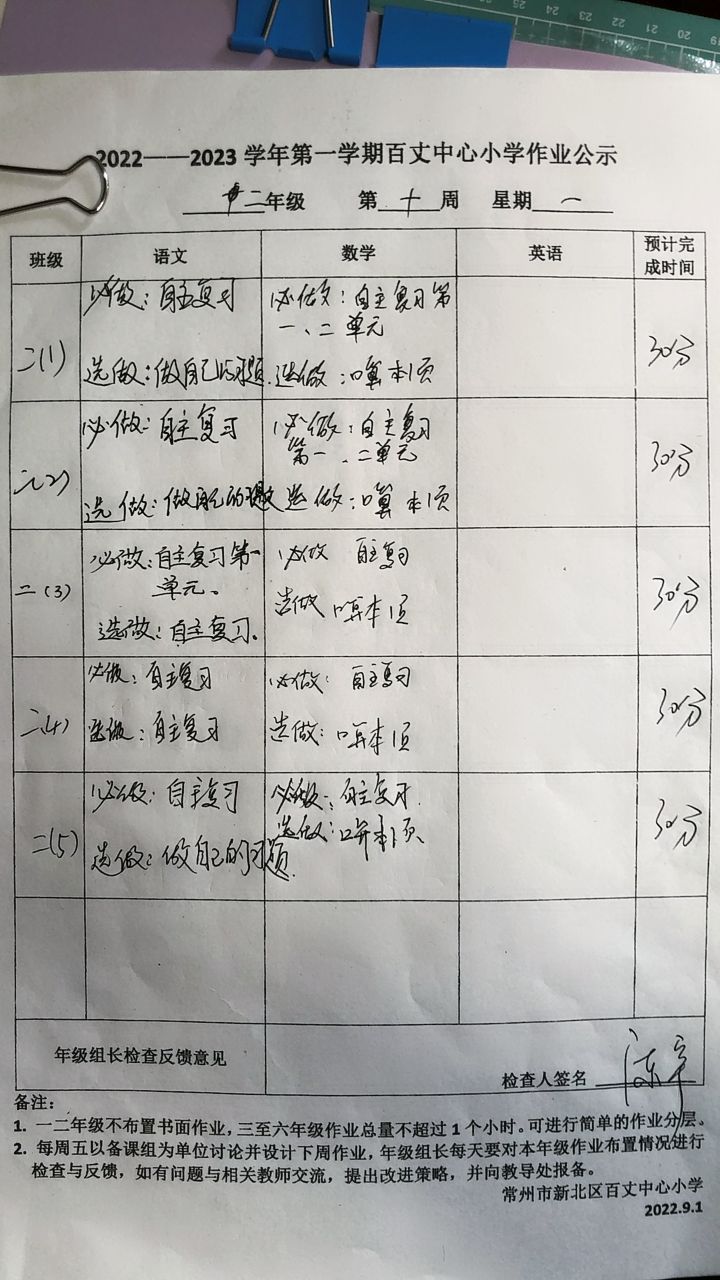 2022——2023 学年第一学期百丈中心小学作业公示
二年级 第 十 周 星期 一
班级 语文 数学 英语 预计完成时间
二(1)
必做：自主复习
选做：做自己的习题.
必做：自主复习第
一、二单元
选做：口算本1页
30分
二(2)
必做：自主复习
选做：做自己的习题
必做：自主复习
第一、二单元
选做：口算本1页
30分
二(3)
必做：自主复习第一
单元。
选做：自主复习.
必做 自主复习
选做 口算本1页
30分
二(4)
必做：自主复习
选做：自主复习
必做：自主复习
选做：口算本1页
30分
二(5)
必做：自主复习
选做：做自己的习题.
必做：自主复习.
选做：口算本1页
30分
年级组长检查反馈意见
检查人签名
备注：
1. 一二年级不布置书面作业，三至六年级作业总量不超过 1 个小时。可进行简单的作业分层。
2. 每周五以备课组为单位讨论并设计下周作业，年级组长每天要对本年级作业布置情况进行
检查与反馈，如有问题与相关教师交流，提出改进策略，并向教导处报备。
常州市新北区百丈中心小学
2022.9.1